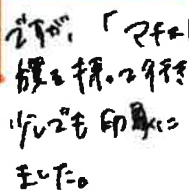 ですが、「マチネ
を持って行き
少しでも印象に
ました。